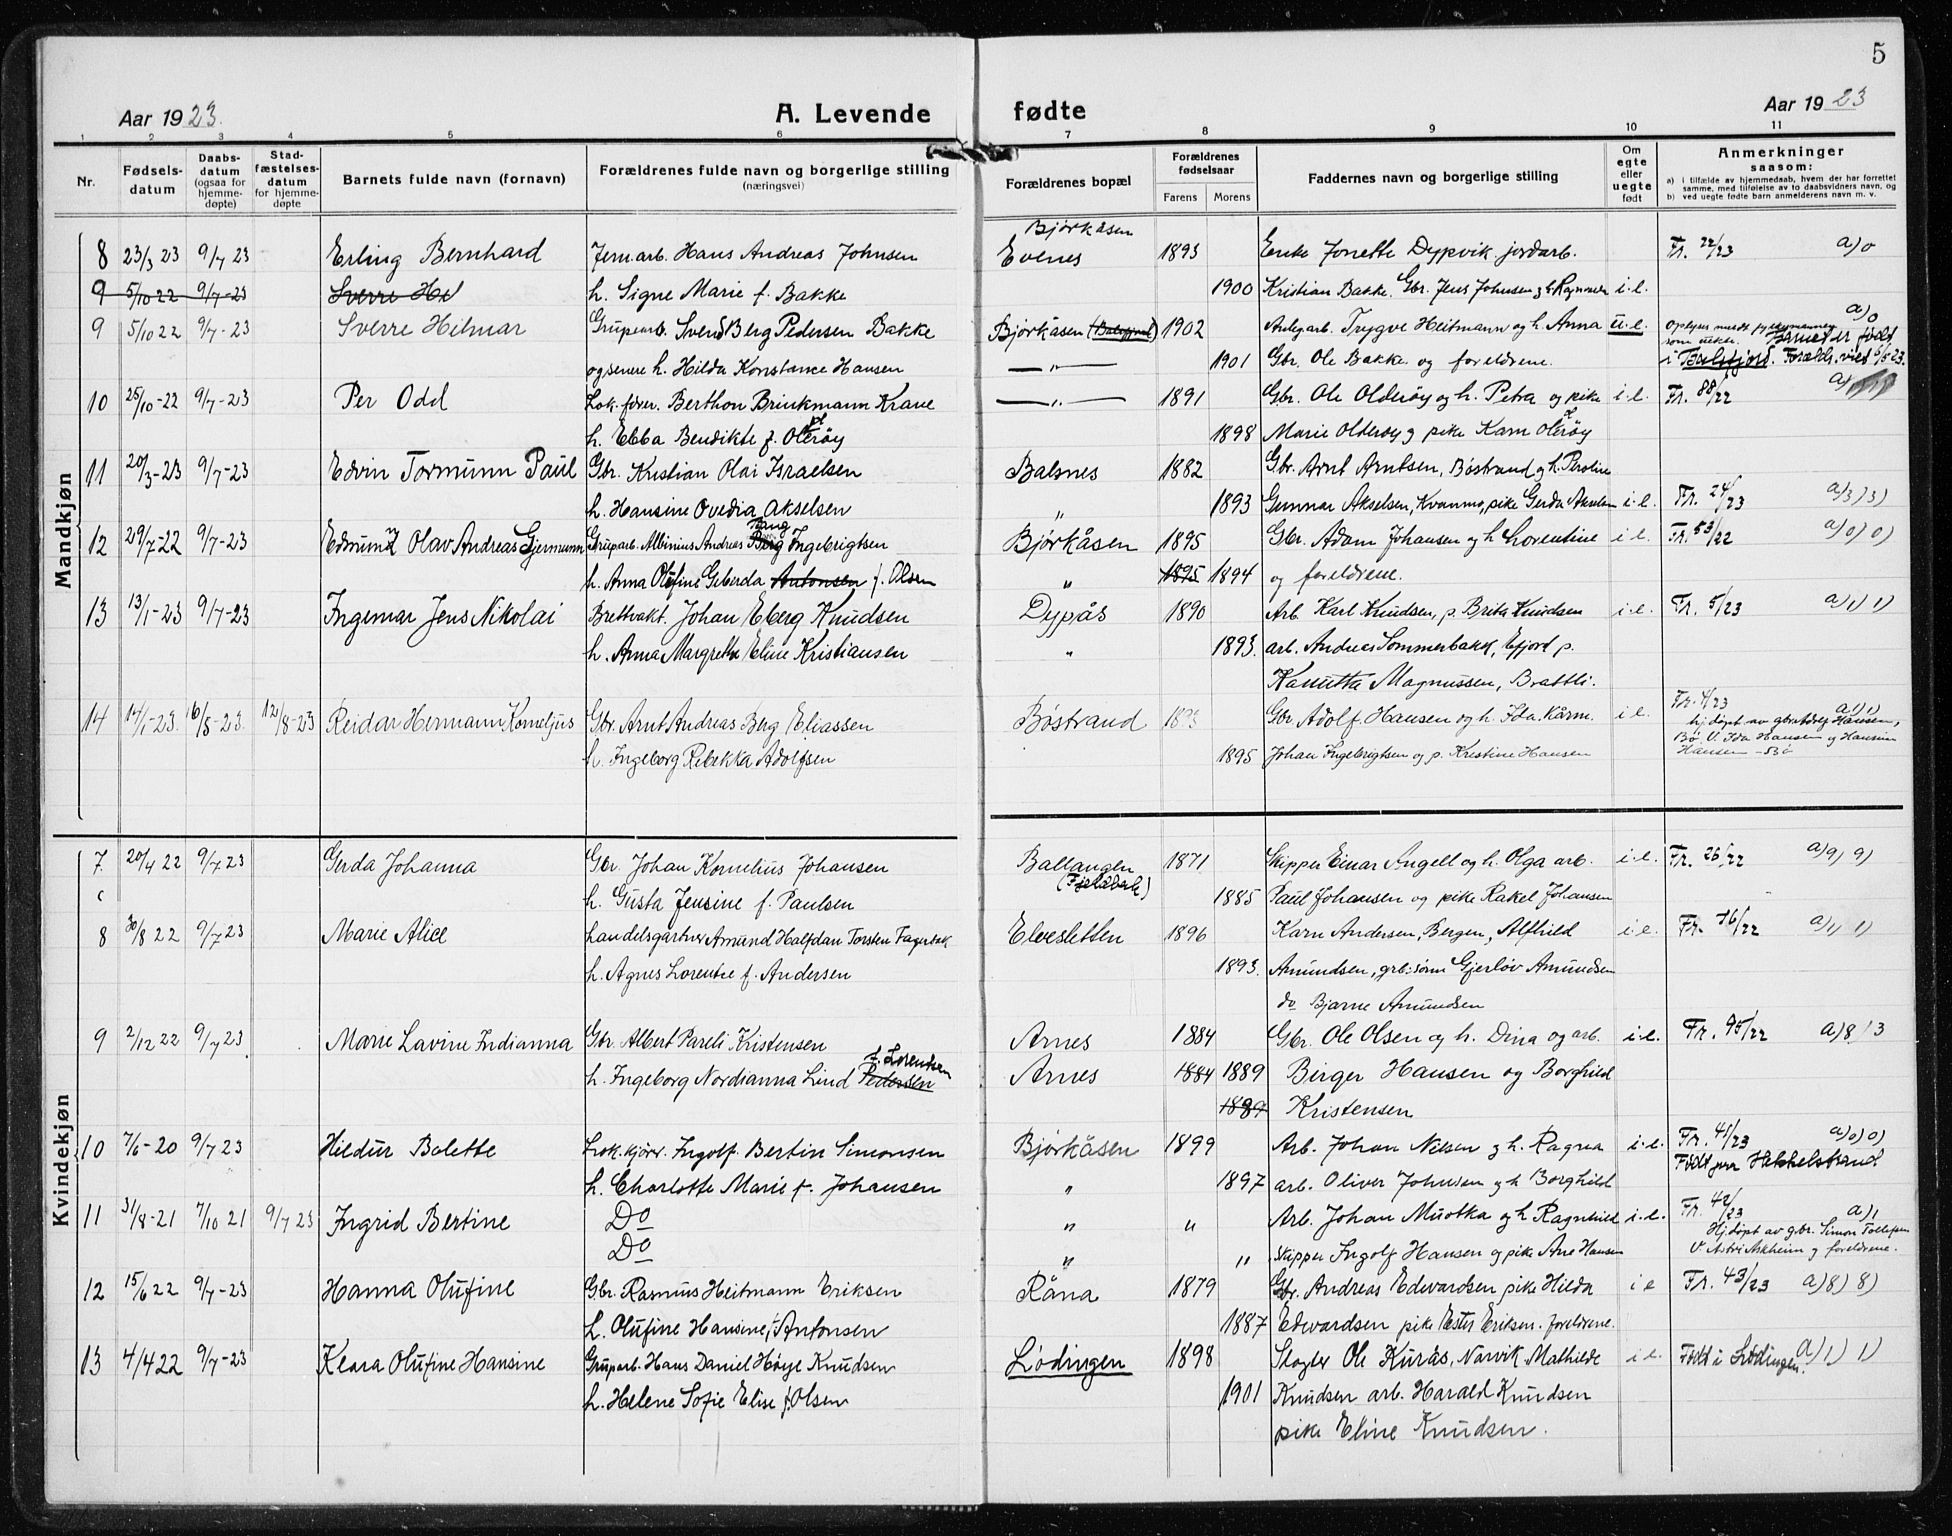 5
Aar 1923.
A. Levende fødte
Aar 1923
1 2 3 4 5 6 7 8 9 10 11
Nr.
Fødselsdatum
Daabsdatum (ogsaa for hjemmedøpte)
Stadfæstelsesdatum for hjemmedøpte
Barnets fulde navn (fornavn)
Forældrenes fulde navn og borgerlige stilling (næringsvei)
Forældrenes bopæl
Forældrenes fødselsaar
Farens Morens
Faddernes navn og borgerlige stilling
Om egte eller uegte født
Anmerkninger saasom:
a) i tilfælde av hjemmedaab, hvem der har forrettet samme, med tilføielse av to daabsvidners navn, og
b) ved uegte fødte barn anmelderens navn m. v.
Mandkjøn
Bjørkåsen
8 23/3 23 9/7 23 Erling Bernhard Jernarb. Hans Andreas Johnsen Evenes 1893 Enke Jonette Dypvik jordarb. Fr. 22/23 a) 0
9 5/10 22 9/7-23 Sverre Hil h. Signe Marie f. Bakke 1900 Kristian Bakke. Gbr. Jens Johnsen og h. Ragna i.e.
9 5/10 22 9/7-23 Sverre Hilmar Grupearb. Svend Berg Pedersen Bakke Bjørkåsen (Balsfjord) 1902 Anlegarb. Trygve Heitmann og h. Anna u.e. a) 0
som uekte. Barnet er født
og senere h. Hilda Konstance Hansen —"— 1901 Gbr. Ole Bakke og foreldrene. i Balsfjord. Forældr. viet 6/5 23.
10 25/10-22 9/7-23 Per Odd Lok.fører. Berthon Brinkmann Krane —"— 1891 Gbr. Ole Olderøy og h. Petra og pike i.e. Fr. 88/22 a)
h. Ebba Bendikte f. Olerøy 1898 Marie Olderøy og pike Karn Olerøy
11 20/3-23 9/7-23 Edvin Tormunn Paul Gbr. Kristian Olai Israelsen Balsnes 1882 Gbr. Arnt Arntsen, Bøstrand og h. Peroline
h. Hansine Ovedia Akselsen " 1893 Gunnar Akselsen, Kvanmo, pike Gerda Akselsen i.e. Fr. 24/23 a) 3) 3)
12 29/7-22 9/7-23 Edmund Olav Andreas Gjermunn Gruparb. Albinius Andreas Berg Bang Ingebrigtsen Bjørkåsen 1895 Gbr. Adam Johansen og h. Lorentine i.e. Fr. 53/22 a) 0) 0)
h. Anna Olufine Geberda Antonsen f. Olsen " 1895 1894 og foreldrene.
13 13/1-23 9/7-23 Ingemar Jens Nikolai Brettvakt. Johan Eberg Knudsen Dypås 1890 Arb. Karl Knudsen, p. Brita Knudsen i.e. Fr. 5/23 a) 1) 1)
h. Anna Margrethe Eline Kristiansen " 1893. arb. Andreas Sommerbakk, Efjord p.
Kanutta Magnussen, Brattli.
14 14/1-23. 16/8-23. 12/8-23 Reidar Hermann Korneljus Gbr. Arnt Andreas Berg Eliassen Bøstrand Gbr Adolf. Hansen og h. Ida Kårm. i.e. Fr. 4/23 a) 1) 1)
hj. døpt av gbr Adolf Hansen,
Bø. V. Ida Hansen og Hansine
Hansen - Bø
h. Ingeborg Rebekka Adolfsen 1895 Johan Ingebrigtsen og p. Kristine Hansen
Kvindekjøn
7. 20/4 22 9/7 23 Gerda Johanna Gbr. Johan Kornelius Johansen Ballangen (Fjeldbak) 1871 Skipper Einar Angell og h. Olga arb. i.e. Fr. 26/22 a) 9) 9)
h. Gusta Jensine f. Paulsen 1885 Paul Johansen og pike Rakel Johansen
8 30/8 22 9/7 23 Marie Alice Handelsgartner Amund Halfdan Torsten Fagerbak Elvesletten 1896 Karn Andersen, Bergen, Alfhild i.e. Fr. 76/22 a) 1) 1)
h. Agnes Lorentze f. Andersen 1893. Amundsen, grb.sønn Gjerløv Amundsen
do Bjarne Amundsen
9 2/12 22 9/7 23 Marie Lavine Indianna Gbr. Albert Pareli Kristensen Arnes 1884 Gbr. Ole Olsen og h. Dina og arb. i.e. Fr. 95/22 a) 8) 3
h. Ingeborg Nordianna Lind Pedersen f. Lorentsen Arnes 1884 1889 Birger Hansen og Borghild
1889 Kristensen
10 7/6-20 9/7 23 Hildur Bolette Lok.kjører. Ingolf. Bertin Simonsen Bjørkåsen 1899 Arb. Johan Nilsen og h. Ragna i.e. Fr. 41/23 a) 0) 0)
h. Charlotte Marie f. Johansen " 1897 arb. Oliver Johnsen og h Borghild
11 31/8-21 7/10 21 9/7 23 Ingrid Bertine Do " " Arb. Johan Muotka og h. Ragnhild i.e. Fr. 42/23 a) 1
Hj. døpt av gbr. Simon Tollefsen
V Astri Askheim og foreldrene.
Do " " Skipper Ingolf Hansen og pike Ane Hansen
12 15/6 22 9/7-23 Hanna Olufine Gbr. Rasmus Heitmann Eriksen Råna 1879 Gbr. Andreas Edvardsen pike Hilda i e Fr. 43/23 a) 8) 8)
h. Olufine Hansine f. Antonsen 1887 Edvardsen pike Ester Eriksen. foreldrene.
13 4/4 22 9/7-23 Klara Olufine Hansine Gruparb. Hans Daniel Høye Knudsen Lødingen 1898 Ole Kurås, Narvik. Mathilde i e. Født i Lødingen. a) 1) 1)
h. Helene Sofie Elise f. Olsen 1901 Knudsen arb. Harald Knudsen
pike Eline Knudsen.